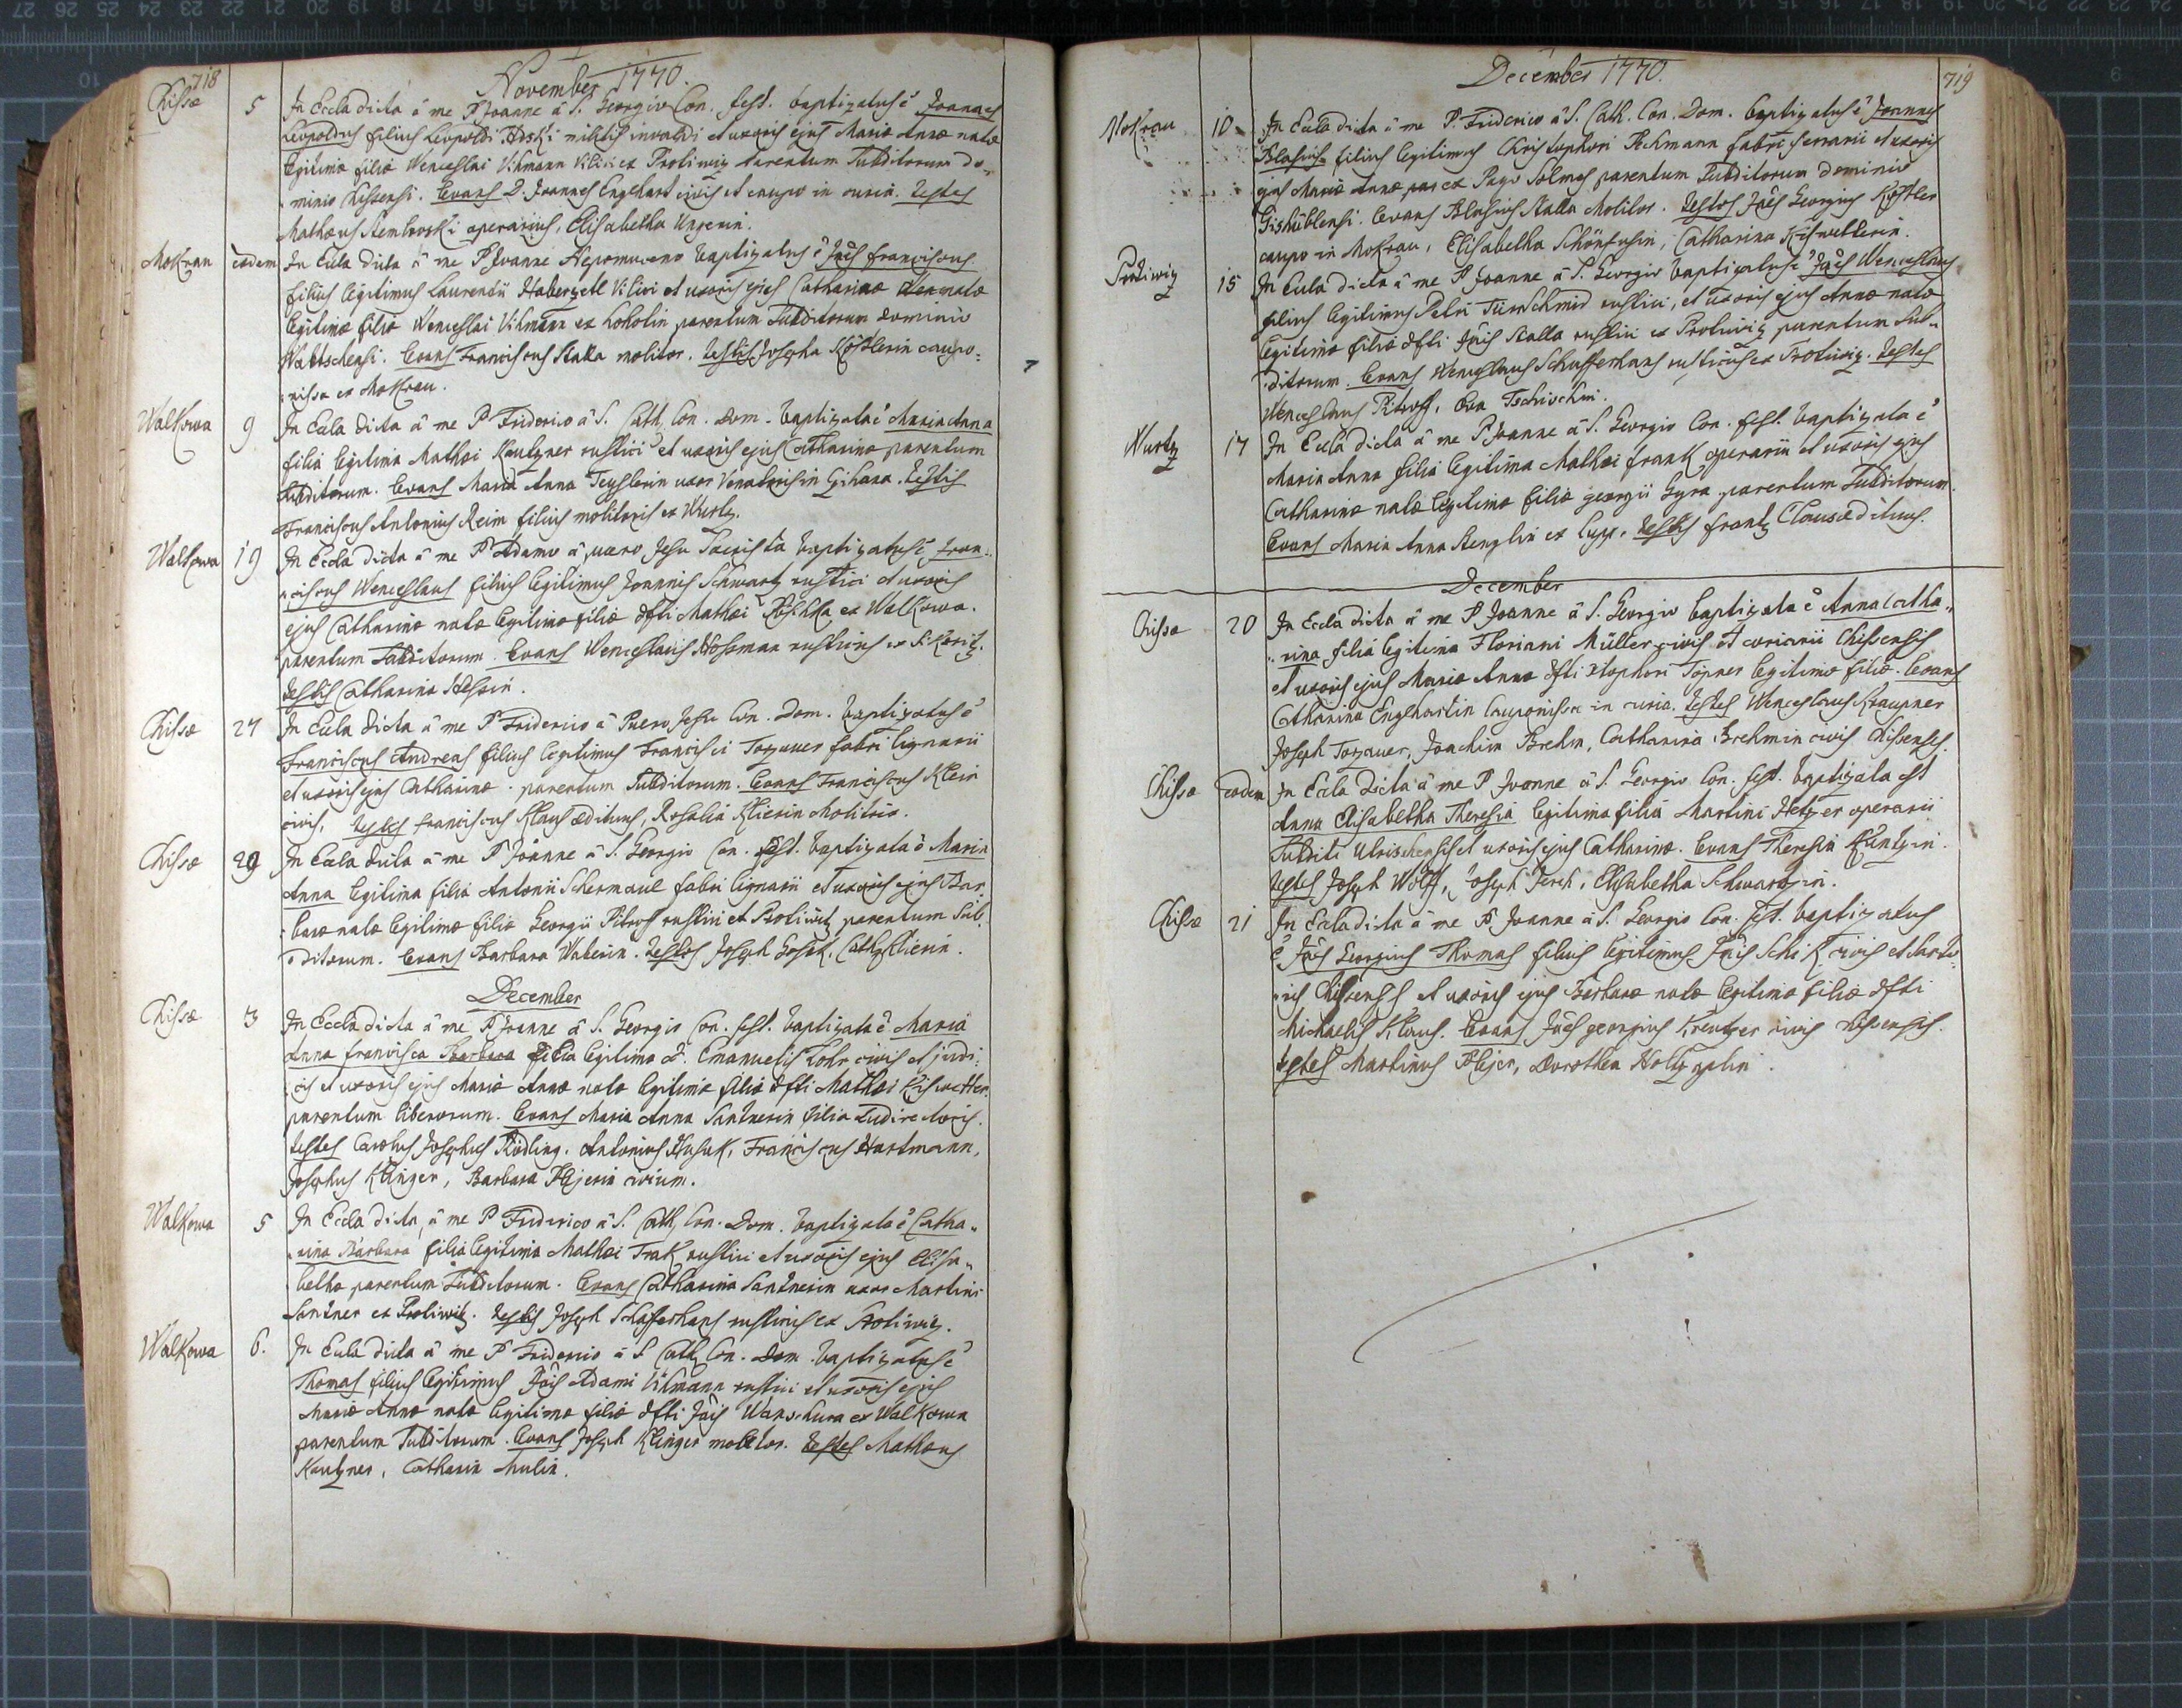 718
November 1770.
Chissæ 5 In Eccla dicta â me P Joanne â S. Georgio Con. fest. baptizatus ê Joannes
Leopoldus filius Leopoldi militis invalidi et uxoris ejus Mariæ Annæ natæ
legitimæ filiæ Wenceslai Vihmann Vilici ex Protiwiz parentum Subditorum do,,
,,minio Chissensi. Levans D. Joannes Englhart civis et caupo in curia. Testes
Mathæus operarius, Elisabetha Ungerin.
Mokrau eodem In Eccla dicta â me P Joanne Nepomuceno baptizatus ê Jōes Franciscus
filius legitimus Laurentii Haberzetl Vilici et uxoris ejus Catharinæ natæ
legitimæ filiæ Wenceslai Vihmann ex Lohotin parentum Subditorum dominio
Waltschensi. Levans Franciscus Stalla molitor. Testis Josepha Köstlerin caupo=
nissa ex Mokrau.
Walkowa 9 In Eccla dicta â me P Friderico â S. Cath. Con. Dom. baptizata ê Maria Anna
filia legitima Mathæi Kautzner rustici et uxoris ejus Catharinæ parentum
Subditorum. Levans Maria Anna Teyslerin uxor Venatoris in Testis
Franciscus Antonius Reim filius molitoris ex Wurtz.
Walkowa 19 In Eccla dicta â me P Adamo â puero Jesu Sacrista baptizatus ê Fran=
ciscus Wenceslaus filius legitimus Joannis Schwartz rustici et uxoris
ejus Catharinæ natæ legitimæ filiæ dfti Mathæi ex Walkowa.
parentum Subditorum. Levans Wenceslaus Hossman rusticus ex
Testis Catharina
Chissæ 27 In Eccla dicta â me P Friderico â Puero Jesu Con. Dom. baptizatus ê
Franciscus Andreas filius legitimus Francisci Torzauer fabri lignarii
et uxoris ejus Catharinæ parentum Subditorum. Levans Franciscus Klein
civis, Testes Franciscus Klaus ædituus, Rosalia Klierin Molitrix.
Chissæ 29 In Eccla dicta â me P Joanne â S. Georgio Con. fest. baptizata ê Maria
Anna legitima filia Antonii Schermaul fabri lignarii et uxoris ejus Bar
baræ natæ legitimæ filiæ Georgii Pitrof rustici ex Protiwitz parentum Sub
ditorum. Levans Barbara Waberin. Testes Joseph
December
Chissæ 3 In Eccla dicta â me P Joanne â S. Georgio Con. fest. baptizata ê Maria
Anna Francisca Barbara filia legitima D. Emanuelis Lohr civis et judi:
cis et uxoris ejus Mariæ Annæ natæ legitimæ filiæ dfti Mathæi Kisswetter
parentum liberorum. Levans Maria Anna Santnerin filia Ludirectoris.
Testes Carolus Josephus Rödling. Antonius Husak, Franciscus Hartmann,
Josephus Klinger, Barbara Plejerin civium.
Walkowa 5 In Eccla dicta â me P Friderico â S. Cath. Con. Dom. baptizata ê Catha,,
rina Barbara filia legitima Mathæi Trak rustici et uxoris ejus Elisa,,
bethæ parentum Subditorum. Levans Catharina Santnerin uxor Martini
Santner ex Protiwitz. Testis Joseph Schafferhans rusticus ex Protiwiz.
Walkowa 6. In Eccla dicta â me P Friderico â S Cath. Con. Dom. baptizatus ê
Thomas filius legitimus Jōis Adami Vihmann rustici et uxoris ejus
Mariæ Annæ natæ legitimæ filiæ dfti Jōis Wanschura ex Walkowa
parentum Subditorum. Levans Joseph Klinger molitor. Testes Mathæus
Kautzner, Catharin Mulin.
719
December 1770.
Mokrau 10 In Eccla dicta â me P. Friderico â S. Cath. Con. Dom. baptizatus ê Joannes
Blasius filius legitimus Christophori Pehmann fabri ferrarii et uxoris
ejus Mariæ Annæ ex Pago Solmes parentum Subditorum dominio
Gishüblensi. Levans Blasius Stalla Molitor. Testes Jōes Georgius Köstler
caupo in Mokrau, Elisabetha Catharina Kisswetterin.
Protiwiz 15 In Eccla dicta â me P Joanne â S. Georgio baptizatus ê Jōes Wenceslaus
filius legitimus Petri Türschmid rustici, et uxoris ejus Annæ natæ
legitimæ filiæ dfti Jōis Stalla rustici ex Protiwiz parentum Sub=
ditorum. Levans Wenceslaus Schafferhans rusticus ex Protiwiz. Testes
Wenceslaus Pitroff, Eva Tschischin.
Wurtz 17 In Eccla dicta â me P Joanne â S. Georgio Con. fest. baptizata ê
Maria Anna filia legitima Mathæi Frank operarii et uxoris ejus
Catharinæ natæ legitimæ filiæ georgii Gyra parentum Subditorum.
Levans Maria Anna Stenglin ex Testis Frantz Claus ædituus.
December
Chissæ 20 In Eccla dicta â me P Joanne â S. Georgio baptizata ê Anna Catha,,
,,rina filia legitima Floriani Müller civis et coriarii Chissensis
et uxoris ejus Mariæ Annæ dfti Xtophori Töpner legitimæ filiæ. Levans
Catharina Englhartin Cauponissa in curia. Testes Wenceslaus Kraupner
Joseph Torzauer, Joachim Brehm, Catharina Brehmin civis Chissenses.
Chissæ eodem In Eccla dicta â me P Joanne â S. Georgio Con. fest. baptizata est
Anna Elisabetha Theresia legitima filia Martini Hetzer operarii
Subditi et uxoris ejus Catharinæ. Levans Theresia Küntzin.
Testes Joseph Wolff, Joseph Elisabetha Schwartzin.
Chissæ 21 In Eccla dicta â me P Joanne â S. Georgio Con. fest. baptizatus
ê Jōes Georgius Thomas filius legitimus Jōis Schik civis et Sarto
ris Chissensis et uxoris ejus Barbaræ natæ legitimæ filiæ dfti
Michaelis Klaus. Levans Jōes georgius Kreutzer civis Chissensis.
Testes Martinus Plejer, Dorothea